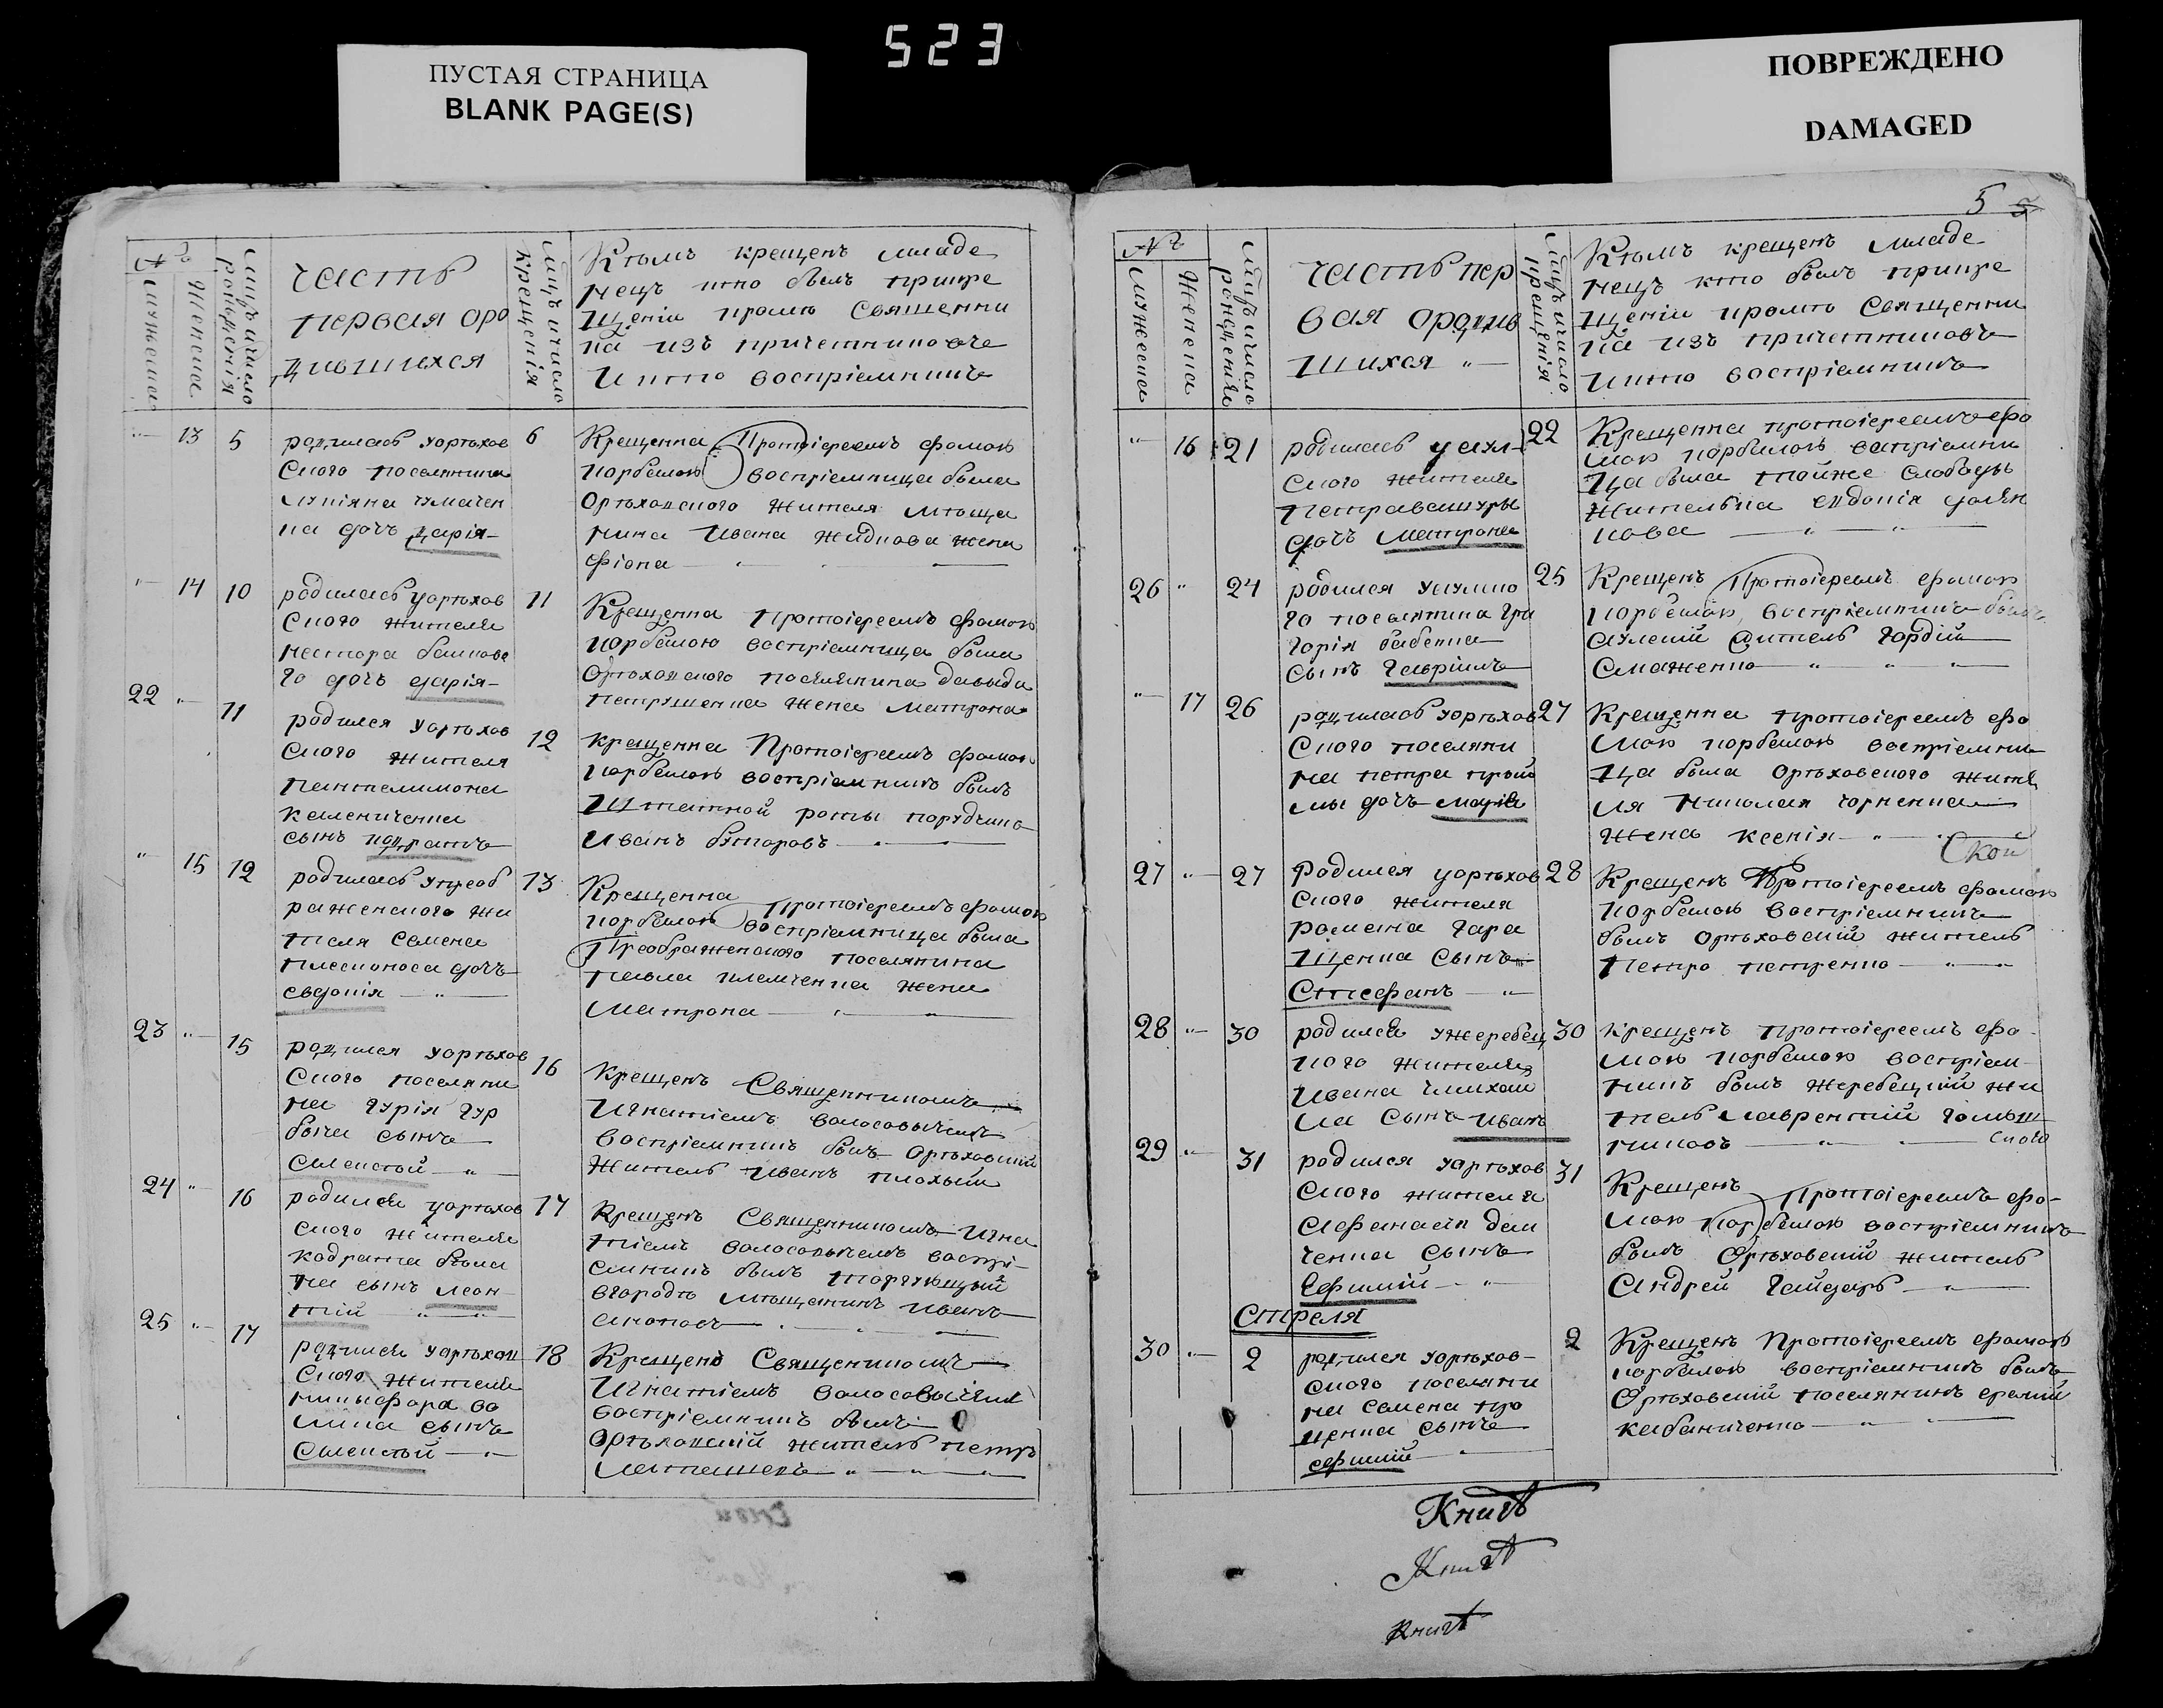 523
ПУСТАЯ СТРАНИЦА
BLANK PAGE(S)
ПОВРЕЖДЕНО
DAMAGED
№
Мужеска
Женска
Мцъ и число
рожденія
Часть
первая оро
дившихся
Мцъ и число
крещенія
Кѣмъ крещенъ младе
нецъ кто былъ прикре
щеніи кромѣ Священни
ка изъ причетниковъ
и кто воспріемникъ
13 5
родилась уорѣхов
скаго поселянина
лукіяна чумачен
ка дочь Дарія
6
Крещенна Протоіереемъ фомою
корбемою воспріемница была
Орѣховского жителя мѣща
нина Ивана жидкова жена
14 10
родилась уорѣхов
скаго жителя
нестора
го дочь дарія
11
Крещенна Протоіереемъ фомою
корбемою воспріемница была
Орѣховского поселянина давыда
петрушенка жена Матрона
22 11
родился уорѣхов
скаго жителя
пантелимона
калениченка
сынъ кодратъ
12
крещенна Протоіереемъ фомою
корбемою воспріемникъ былъ
Штатной роты порудчикъ
Иванъ
15 12
родилась упреоб
раженского жи
теля семена
плесконоса дочь
евдокія
13
Крещенна Протоіереемъ фомою
корбемою воспріемница была
Преображенского поселянина
павла клемченка жена
Матрона
23 15
родился уорѣхов
скаго поселяни
на гурія гур
сынъ
Алексѣй
16
Крещенъ Священникомъ
Игнатіемъ волосовичемъ
воспріемникъ былъ Орѣховскій
житель Иванъ плохый
24 16
родился уорѣхов
скаго жителя
кодрата
на сынъ леон
тій
17
Крещенъ Священникомъ Игна
тіемъ волосовичемъ воспрі
емникъ былъ торгующый
вгородѣ мѣщанинъ Иванъ
25 17
родился уорѣхов
скаго жителя
никифора во
сынъ
Алексѣй
18
Крещенъ Священникомъ
Игнатіемъ волосовичемъ
воспріемникъ былъ
Орѣховскій житель петръ
5
№
Мужеска
Женска
Мцъ и число
рожденія
Часть пер
вая ородив
шихся
Мцъ и число
крещенія
Кѣмъ крещенъ младе
нецъ кто былъ прикре
щеніи кромѣ Священни
ка изъ причетниковъ
и кто воспріемникъ
16 21
родилась
скаго жителя
Петра
дочь Матрона
22
Крещенна протоіереемъ фо
мою корбемою воспріемни
ца была тойже слободы
жителька евдокія
кова
26 24
родился
го поселянина гри
горія бабенка
сынъ Гавріилъ
25
Крещенъ Протоіереемъ фомою
корбемою воспріемникъ былъ
житель Гордій
Смаженко
17 26
родилась уорѣхов
скаго поселяни
на петра прий
мы дочь марія
27
Крещенна протоіереемъ фо
мою корбемою воспріемни
ца была Орѣховского жите
ля николая чорненка
жена ксенія
Ской
27 27
Родился уорѣхов
скаго жителя
романа гара
щенка сынъ
Стефанъ
28
Крещенъ Протоіереемъ фомою
корбемою воспріемникъ
былъ орѣховскій житель
Петро петренко
28 30
родился ужеребец
кого жителя
Ивана
ла сынъ иванъ
30
крещенъ протоіереемъ фо
мою корбемою воспріем
никъ былъ жеребецкій жи
тель лаврентій
29 31
родился уорѣхов
скаго жителя
Афанасія дем
ченка сынъ
Ефимій
31
Крещенъ Протоіереемъ фо
мою корбемою воспріемникъ
былъ Орѣховскій житель
Андрей Гайдаръ
Апреля
30 2
родился уорѣхов
скаго поселяни
на семена про
ценка сынъ
ефимій
2
Крещенъ Протоіереемъ фомою
корбемою воспріемникъ былъ
Орѣховскій поселянинъ еремій
кабаниченко
Книгѣ
Книгѣ
Книгѣ